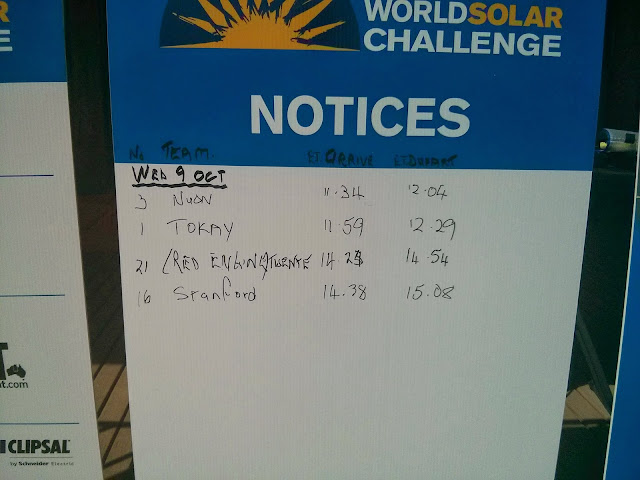 WORLDSOLAR
CHALLENGE
NOTICES
No TEAM. ET ARRIVE ET DEPART
WED 9 OCT
3 NUON 11.34 12.04
1 TOKAY 11.59 12.29
21 (RED ENGINE)TWENTE 14.23 14.54
16 Stanford 14.38 15.08
CLIPSAL
by Schneider Electric